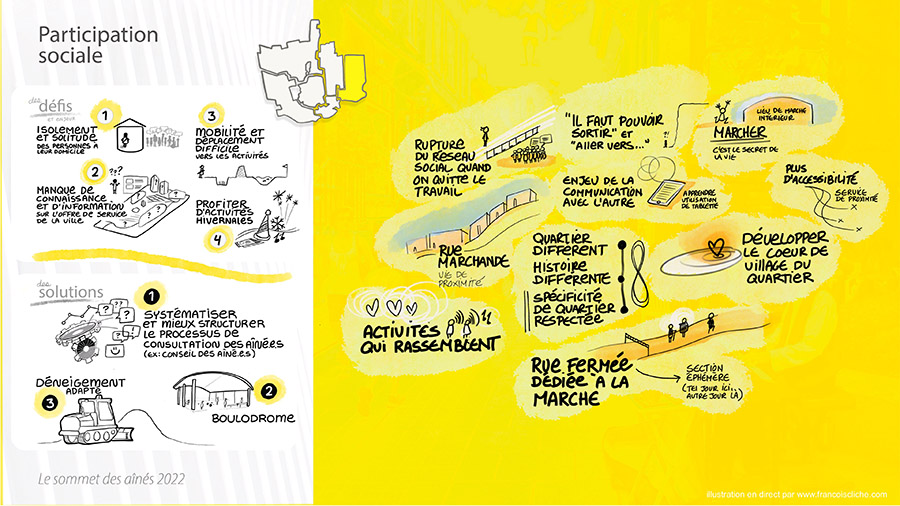 Participation
sociale
des
défis
ET ENJEUX
1
ISOLEMENT
ET SOLITUDE
DES PERSONNES À
LEUR DOMICILE
2
???
MANQUE DE
CONNAISSANCE
ET D'INFORMATION
SUR L'OFFRE DE SERVICE
DE LA VILLE
3
MOBILITÉ ET
DÉPLACEMENT
DIFFICILE
VERS LES ACTIVITÉS
PROFITER
D'ACTIVITÉS
HIVERNALES
4
des
solutions
1
SYSTÉMATISER
ET MIEUX STRUCTURER
LE PROCESSUS DE
CONSULTATION DES AÎNÉ.E.S
(EX: CONSEIL DES AÎNÉ.E.S)
DÉNEIGEMENT
ADAPTÉ
3
2
BOULODROME
Le sommet des aînés 2022
RUPTURE
DU RÉSEAU
SOCIAL QUAND
ON QUITTE LE
TRAVAIL
"IL FAUT POUVOIR
SORTIR" ET
"ALLER VERS..."
LIEU DE MARCHE
INTÉRIEUR
MARCHER
C'EST LE SECRET DE
LA VIE
ENJEU DE LA
COMMUNICATION
AVEC L'AUTRE
APPRENDRE
UTILISATION
DE TABLETTE
PLUS
D'ACCESSIBILITÉ
SERVICE
DE PROXIMITÉ
RUE
MARCHANDE
VIE DE
PROXIMITÉ
QUARTIER
DIFFÉRENT
HISTOIRE
DIFFÉRENTE
SPÉCIFICITÉ
DE QUARTIER
RESPECTÉE
DÉVELOPPER
LE COEUR DE
VILLAGE DU
QUARTIER
ACTIVITÉS
QUI RASSEMBLENT
RUE FERMÉE
DÉDIÉE À LA
MARCHE
SECTION
ÉPHÉMÈRE
(TEL JOUR ICI..
AUTRE JOUR LÀ)
illustration en direct par www.francoiscliche.com